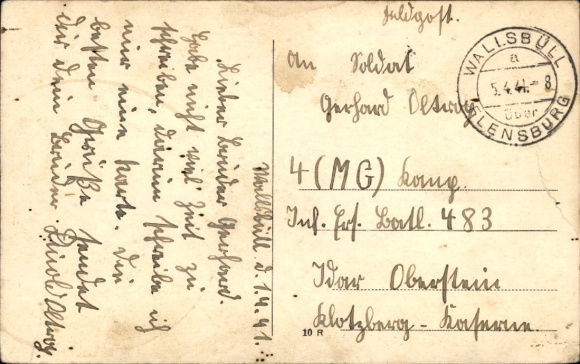 Wallsbüll d. 1.4.41.
Lieber Bruder Gerhard.
Habe nicht viel Zeit zu
schreiben, darum schreibe ich
nur eine Karte. Die
besten Grüße sendet
Dir dein Bruder
Feldpost.
An Soldat
Gerhard Oltrog
4 (MG) Komp.
Inf. Ers. Batl. 483
Idar Oberstein
Klotzberg-Kaserne
WALLSBÜLL
a
5.4.41.-8
über
FLENSBURG
10 R